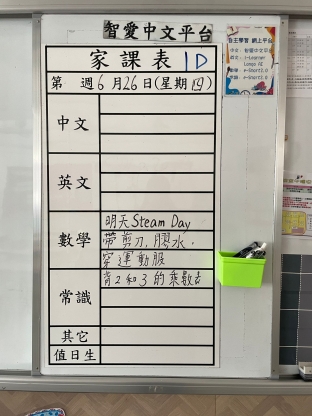 智愛中文平台
家課表 1D
第 週 6月26日(星期四)
中文
英文
數學
明天 Steam Day
帶剪刀,膠水,
穿運動服
常識
背2和3的乘數表
其它
值日生
自主學習 網上平台